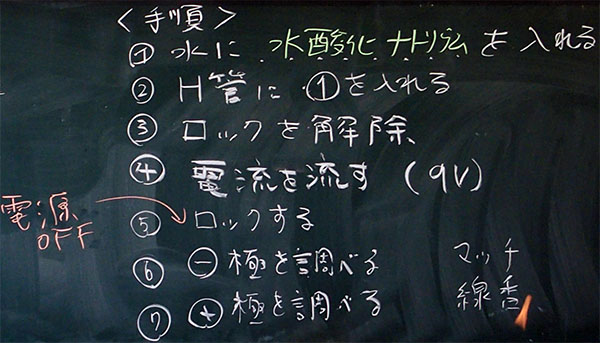 <手順>
① 水に 水酸化ナトリウムを入れる
② H管に ①を入れる
③ ロックを解除
④ 電流を流す (9V)
電源OFF
⑤ ロックする
⑥ ⊖極を調べる マッチ
⑦ ⊕極を調べる 線香